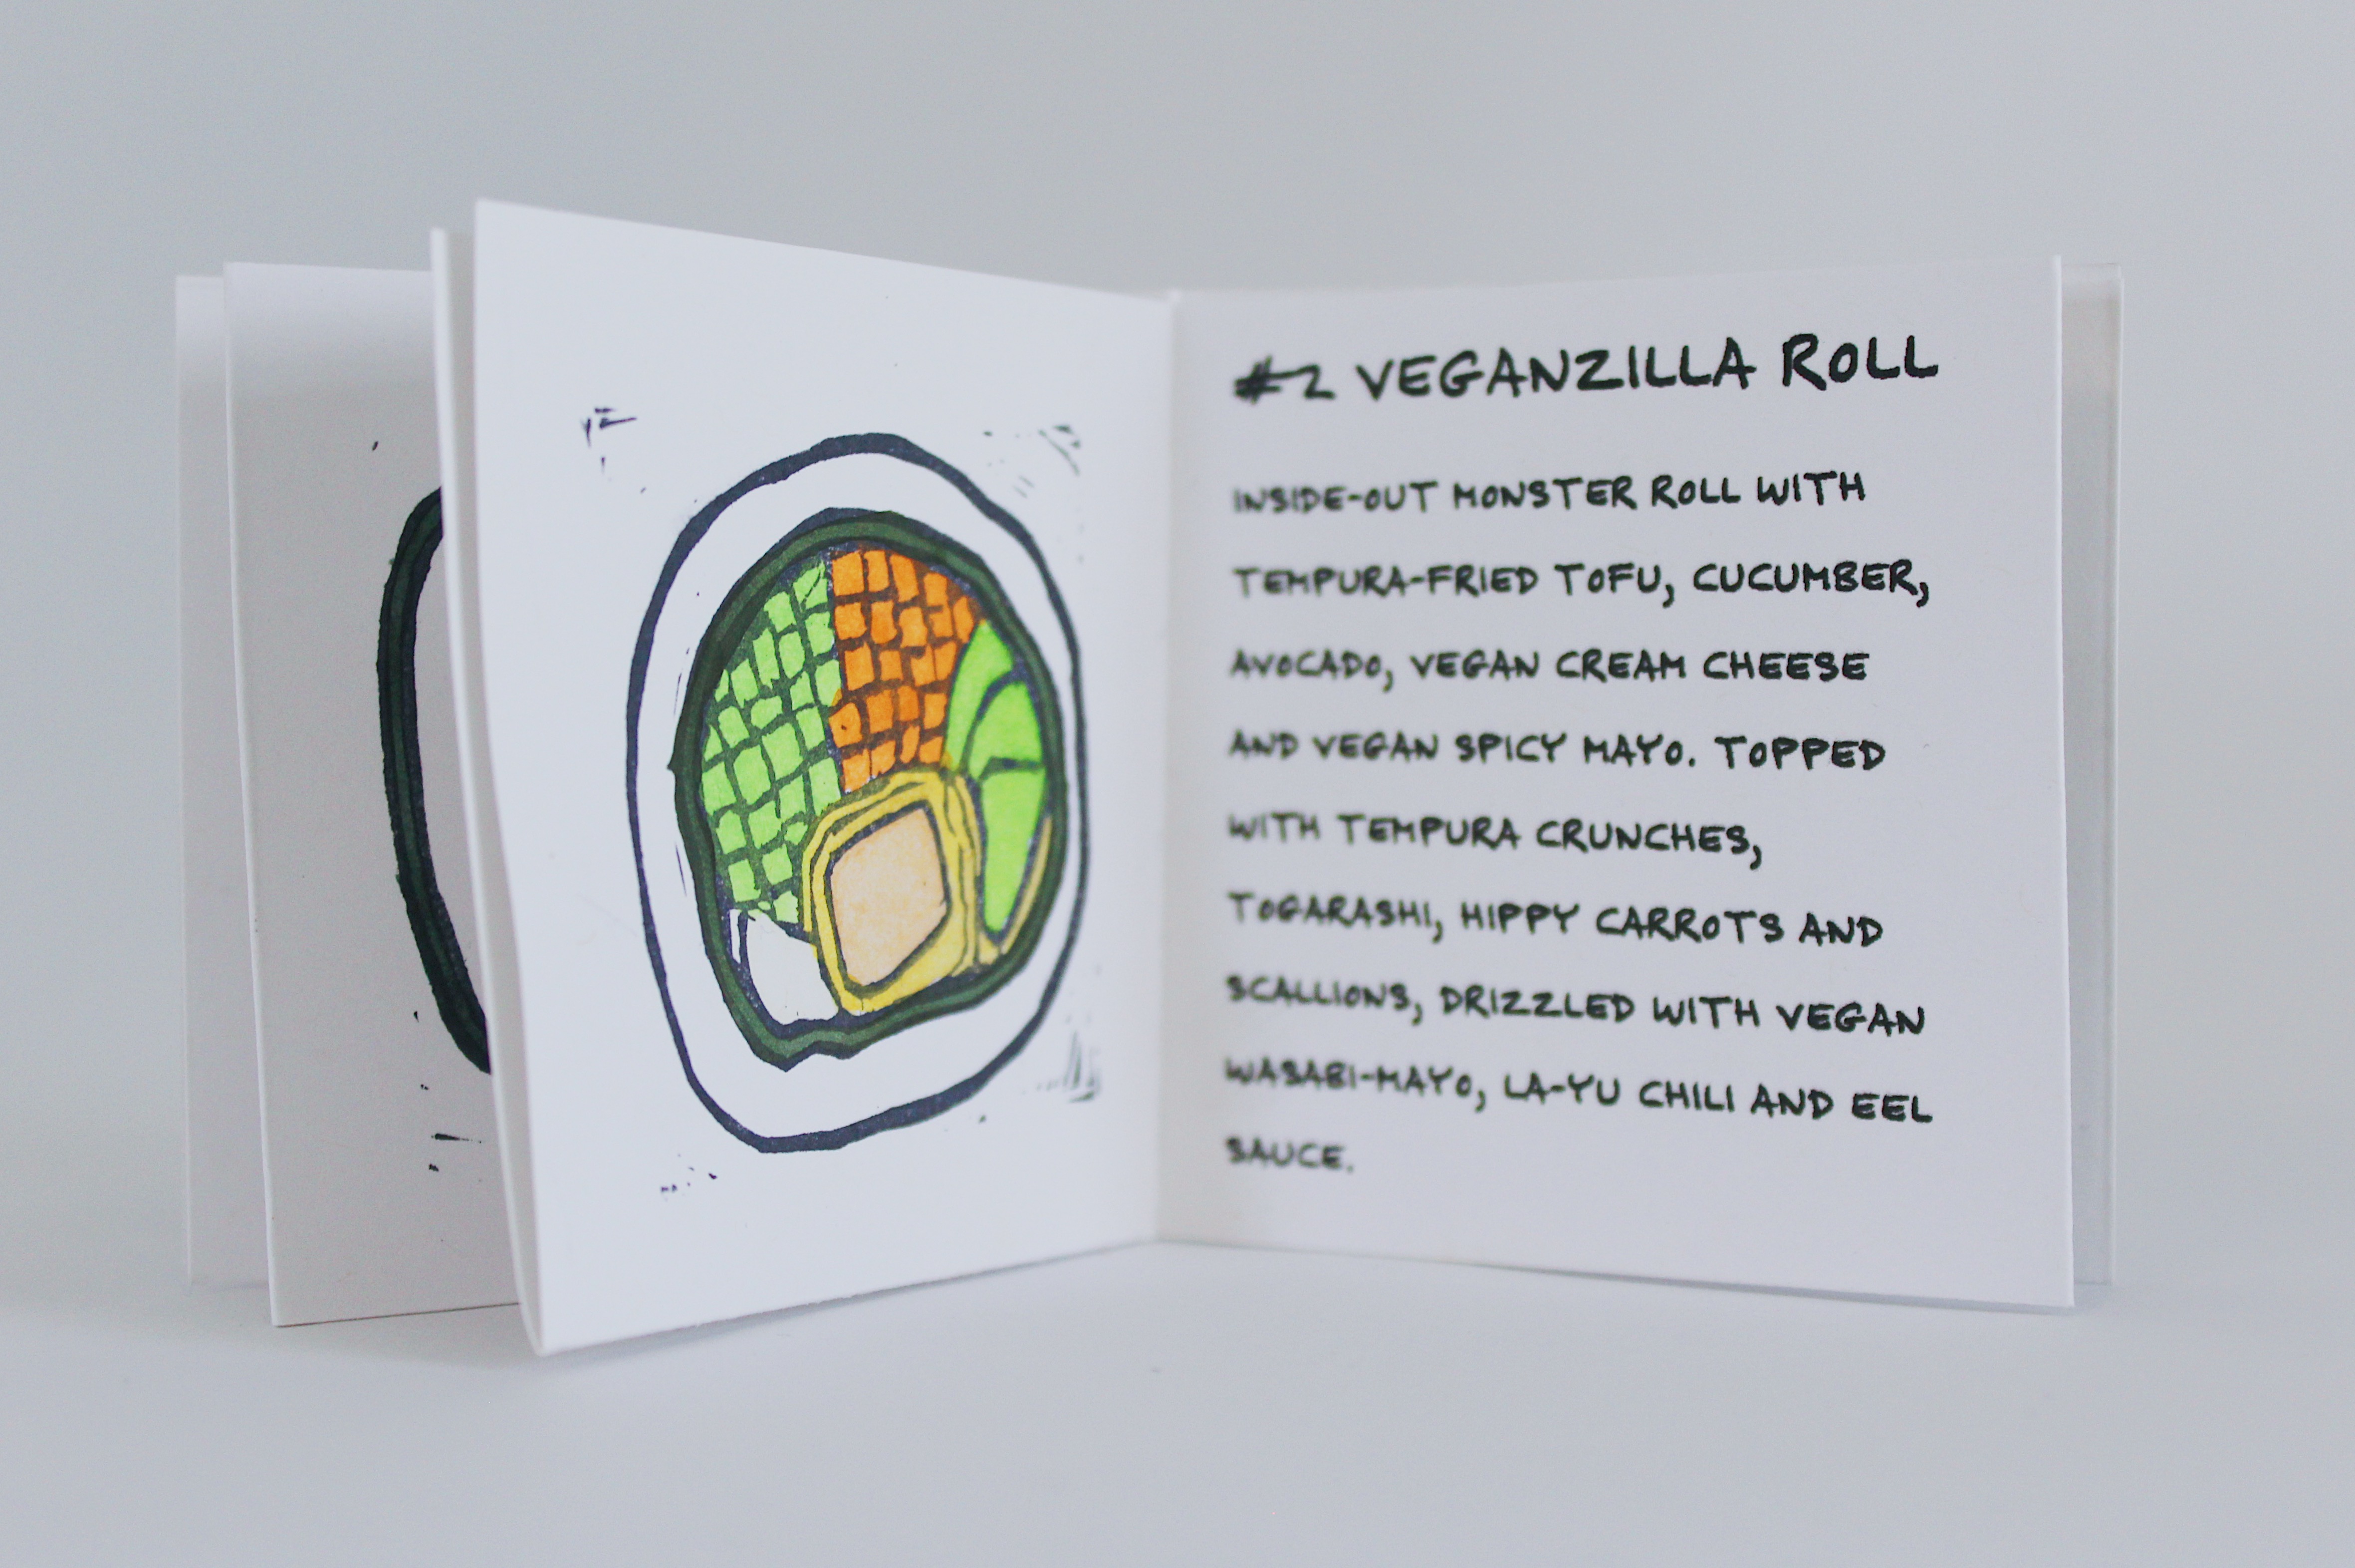 #2 VEGANZILLA ROLL
INSIDE-OUT MONSTER ROLL WITH
TEMPURA-FRIED TOFU, CUCUMBER,
AVOCADO, VEGAN CREAM CHEESE
AND VEGAN SPICY MAYO. TOPPED
WITH TEMPURA CRUNCHES,
TOGARASHI, HIPPY CARROTS AND
SCALLIONS, DRIZZLED WITH VEGAN
WASABI-MAYO, LA-YU CHILI AND EEL
SAUCE.